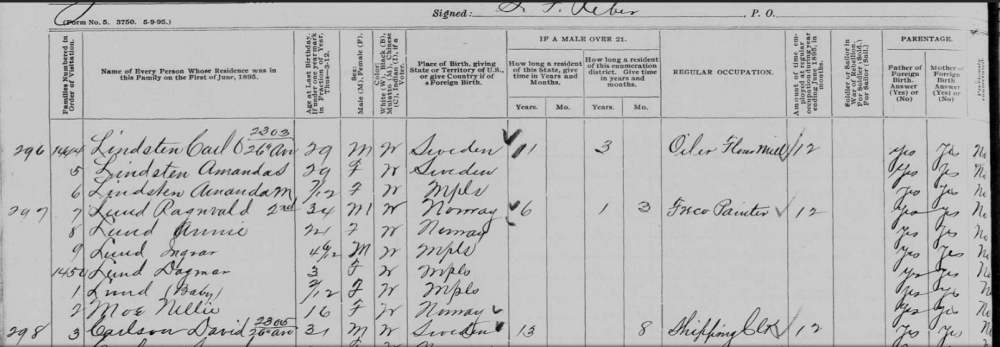 Signed:
, P. O.
(Form No. 5. 3750. 5-9-95.)
Families Numbered in Order of Visitation.
Name of Every Person Whose Residence was in this Family on the First of June, 1895.
Age at Last Birthday. If under one year mark in Fractions of Year. Thus—3-12.
Sex: Male (M), Female (F).
Color: White (W), Black (B), Mulatto (M), Chinese (C), Indian (I), if a Voter.
Place of Birth, giving State or Territory of U.S., or give Country if of Foreign Birth.
IF A MALE OVER 21.
How long a resident of this State, give time in Years and Months.
How long a resident of this enumeration district. Give time in years and months.
Years. Mo. Years. Mo.
REGULAR OCCUPATION.
Amount of time employed at regular occupation during year ending June 1 1895, in months.
Soldier or Sailor in War of Rebellion. For Soldier (Sold.) For Sailor (Sail.)
PARENTAGE.
Father of Foreign Birth. Answer (Yes) or (No)
Mother of Foreign Birth Answer (Yes) or (No)
296 1444 Lindsten Carl O 2303 26th Av 29 M W Sweden 11 3 Oiler Flour Mill 12 Yes Yes No
5 Lindsten Amanda S 29 F W Sweden Yes Yes No
6 Lindsten Amanda M 7/12 F W Mpls Yes Yes No
297 7 Lund Ragnvald 2nd 34 M W Norway 6 1 3 Fresco Painter 12 Yes Yes No
8 Lund Annie F W Norway Yes Yes No
9 Lund Ingvar M W Mpls Yes Yes No
1450 Lund Dagmar 3 F W Mpls Yes Yes No
1 Lund (Baby) F W Mpls Yes Yes No
2 Moe Nellie 16 F W Norway Yes Yes No
298 3 Carlson David 2305 26th Av 31 M W Sweden 13 8 Shipping Clk 12 Yes Yes No